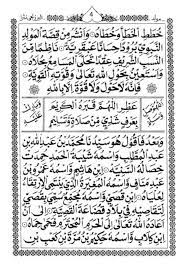 مولد
خِطَطِ الْخَطَإِ وَخُطَاهُ وَأَنْشُرُ مِنْ قِصَّةِ الْمَوْلِدِ
النَّبَوِيِّ بُرُودًا حِسَانًا عَبْقَرِيَّةً نَاظِمًا مِنَ
النَّسَبِ الشَّرِيفِ عِقْدًا تَحَلَّى الْمَسَامِعُ بِحُلَاهُ
وَأَسْتَعِينُ بِحَوْلِ اللهِ تَعَالَى وَقُوَّتِهِ الْقَوِيَّةِ
فَإِنَّهُ لَا حَوْلَ وَلَا قُوَّةَ إِلَّا بِاللهِ
عَطِّرِ اللّٰهُمَّ قَبْرَهُ الْكَرِيمَ
بِعَرْفٍ شَذِيٍّ مِنْ صَلَاةٍ وَتَسْلِيمٍ
وَبَعْدُ فَأَقُولُ هُوَ سَيِّدُنَا مُحَمَّدُ بْنُ عَبْدِ اللهِ بْنِ
عَبْدِ الْمُطَّلِبِ وَاسْمُهُ شَيْبَةُ الْحَمْدِ حُمِدَتْ
خِصَالُهُ السَّنِيَّةُ ابْنِ هَاشِمٍ وَاسْمُهُ عَمْرُو ابْنِ
عَبْدِ مَنَافٍ وَاسْمُهُ الْمُغِيرَةُ الَّذِي يَنْتَمِي الْارْتِقَاءُ
لِعُلْيَاهُ ابْنِ قُصَيٍّ وَاسْمُهُ مُجَمِّعٌ سُمِّيَ بِقُصَيٍّ
لِتَقَاصِيهِ فِي بِلَادِ قُضَاعَةَ الْقَصِيَّةِ
ابْنِ كِلَابٍ وَاسْمُهُ حَكِيمُ بْنُ مُرَّةَ بْنِ كَعْبِ بْنِ